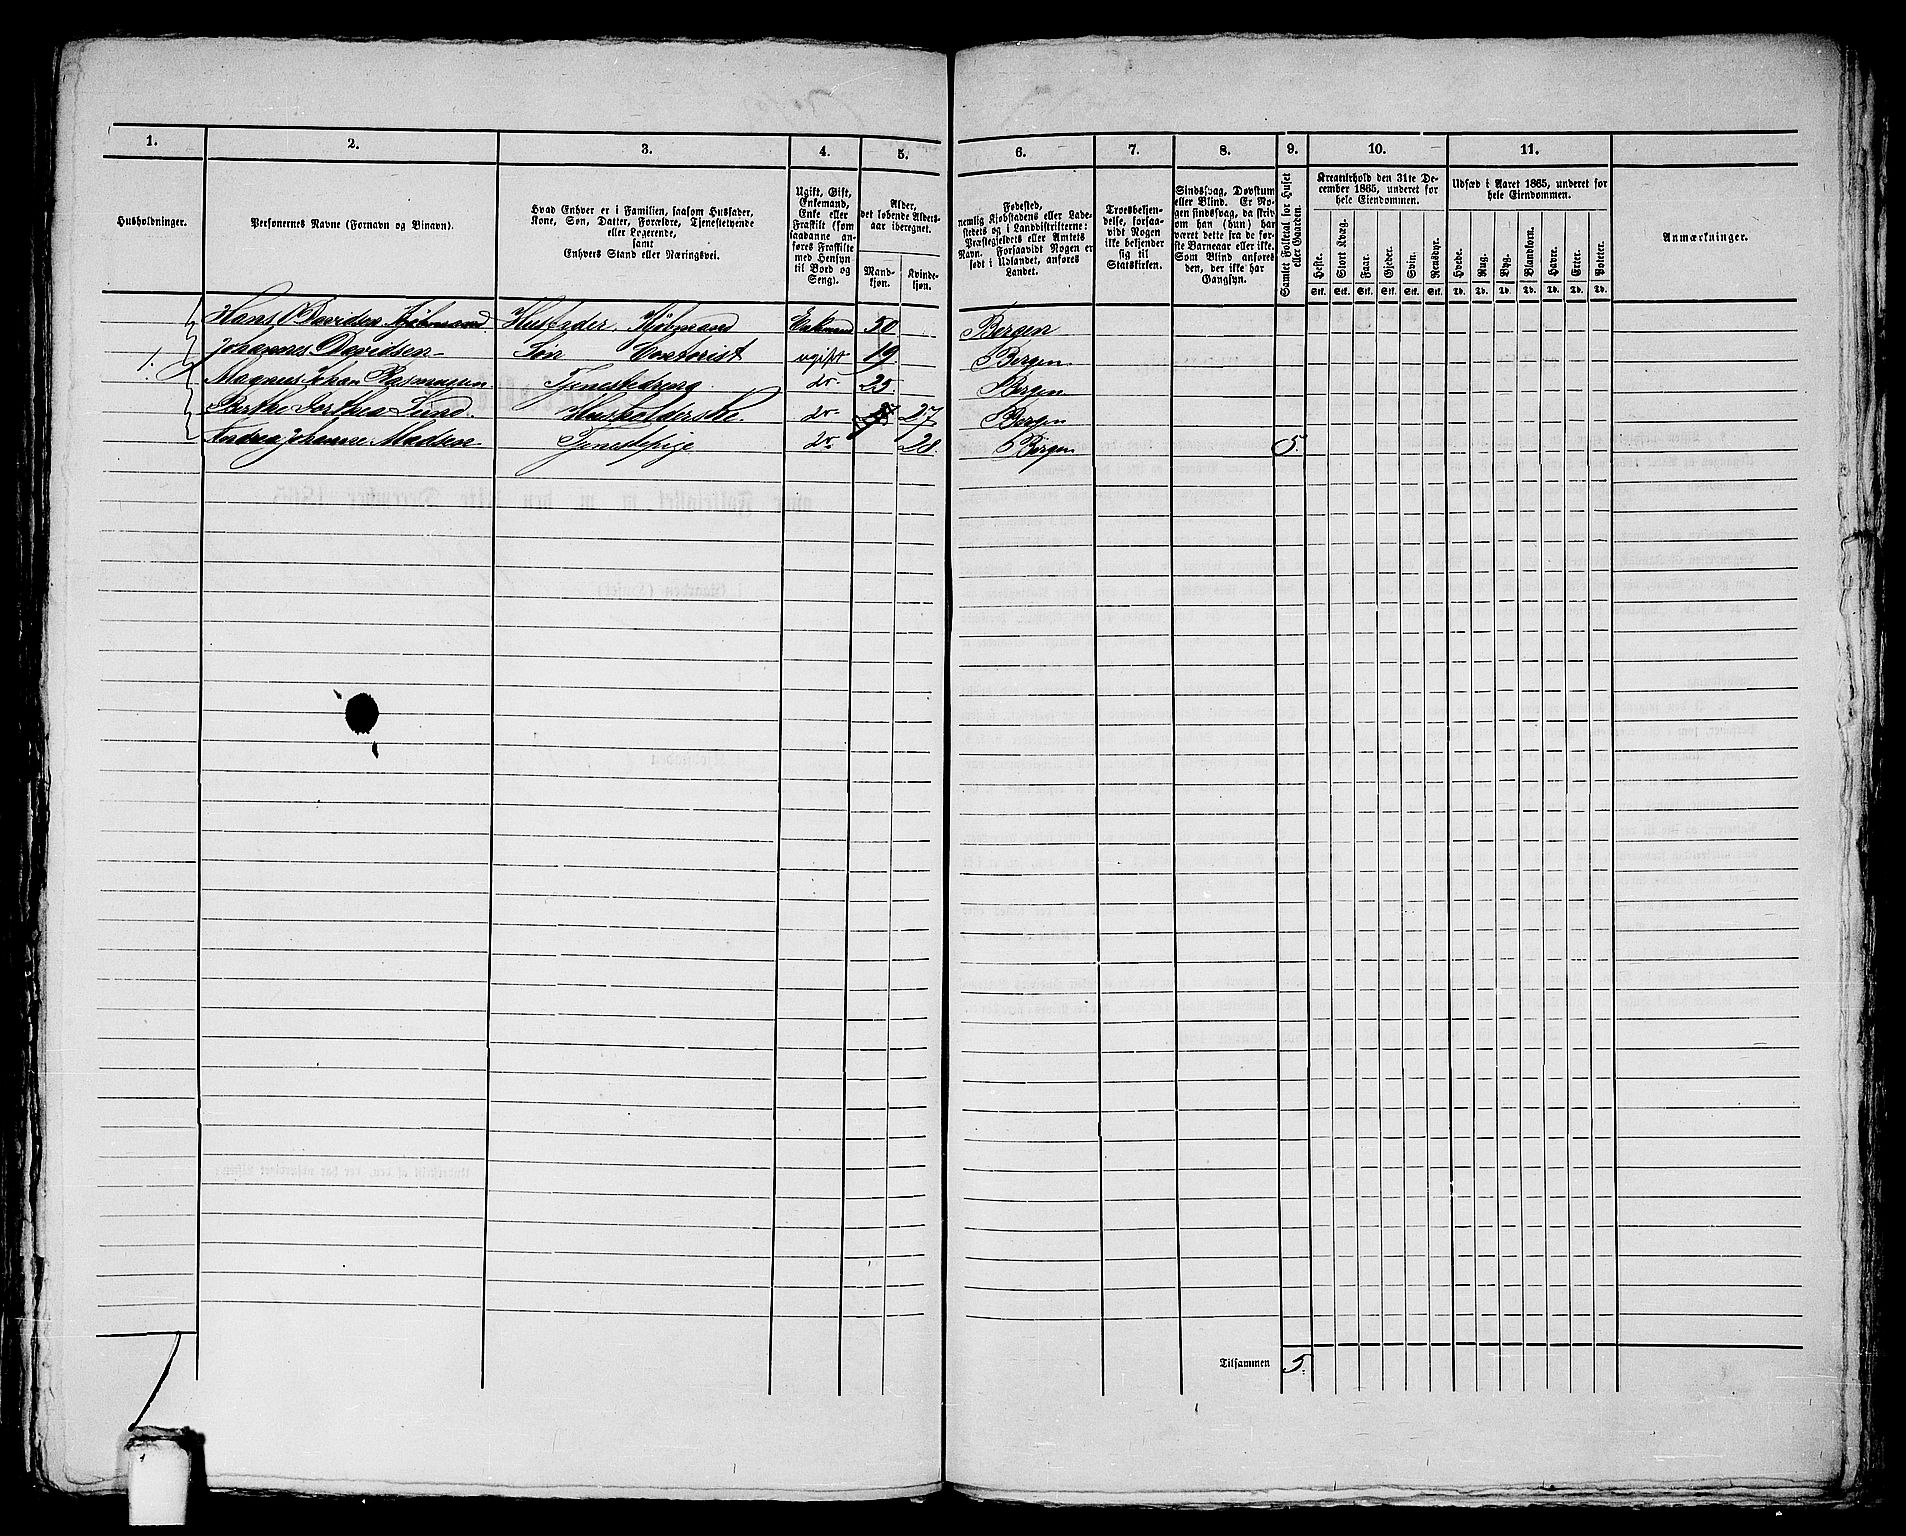 1. 2. 3. 4. 5. 6. 7. 8. 9. 10. 11.
Husholdninger.
Personernes Navne (Fornavn og Binavn).
Hvad Enhver er i Familien, saasom Husfader,
Kone, Søn, Datter, Forældre, Tjenestetyende
eller Logerende,
samt
Enhvers Stand eller Næringsvei.
Ugift, Gift,
Enkemand,
Enke eller
Fraskilt (som
saadanne an-
føres Fraskilte
med Hensyn
til Bord og
Seng).
Alder,
det løbende Alders-
aar iberegnet.
Mand-
kjøn.
Kvinde-
kjøn.
Fødested,
nemlig Kjøbstadens eller Lade-
stedets og i Landdistrikterne:
Præstegjeldets eller Amtets
Navn. Forsaavidt Nogen er
født i Udlandet, anføres
Landet.
Troesbekjen-
delse, forsaa-
vidt Nogen
ikke bekjender
sig til
Statskirken.
Sindssvag, Døvstum
eller Blind. Er No-
gen sindssvag, da skriv
om han (hun) har
været dette fra de før-
ste Barneaar eller ikke.
Som Blind anføres
den, der ikke har
Gangsyn.
Samlet Folketal for Huset
eller Gaarden.
Kreaturhold den 31te De-
cember 1865, underet for
hele Eiendommen.
Heste. Stort Kvæg. Faar. Gjeder. Svin. Rensdyr.
Stk. Stk. Stk. Stk. Stk. Stk.
Udsæd i Aaret 1865, underet for
hele Eiendommen.
Hvede. Rug. Byg. Blandkorn. Havre. Erter. Poteter.
Td. Td. Td. Td. Td. Td. Td.
Anmærkninger.
Hans Davidsen Kjøbmand Husfader, Kjøbmand Enkmand 50 Bergen
1. Johannes Davidsen Søn Contorist ugift 19 Bergen
Magnus Johan Rasmussen Tjenestedreng do 25 Bergen
Berthe Dorthea Lund Husholderske do 27 Bergen
Andrea Johanne Madsen Tjenestepige do 28. Bergen 5.
Tilsammen 5.